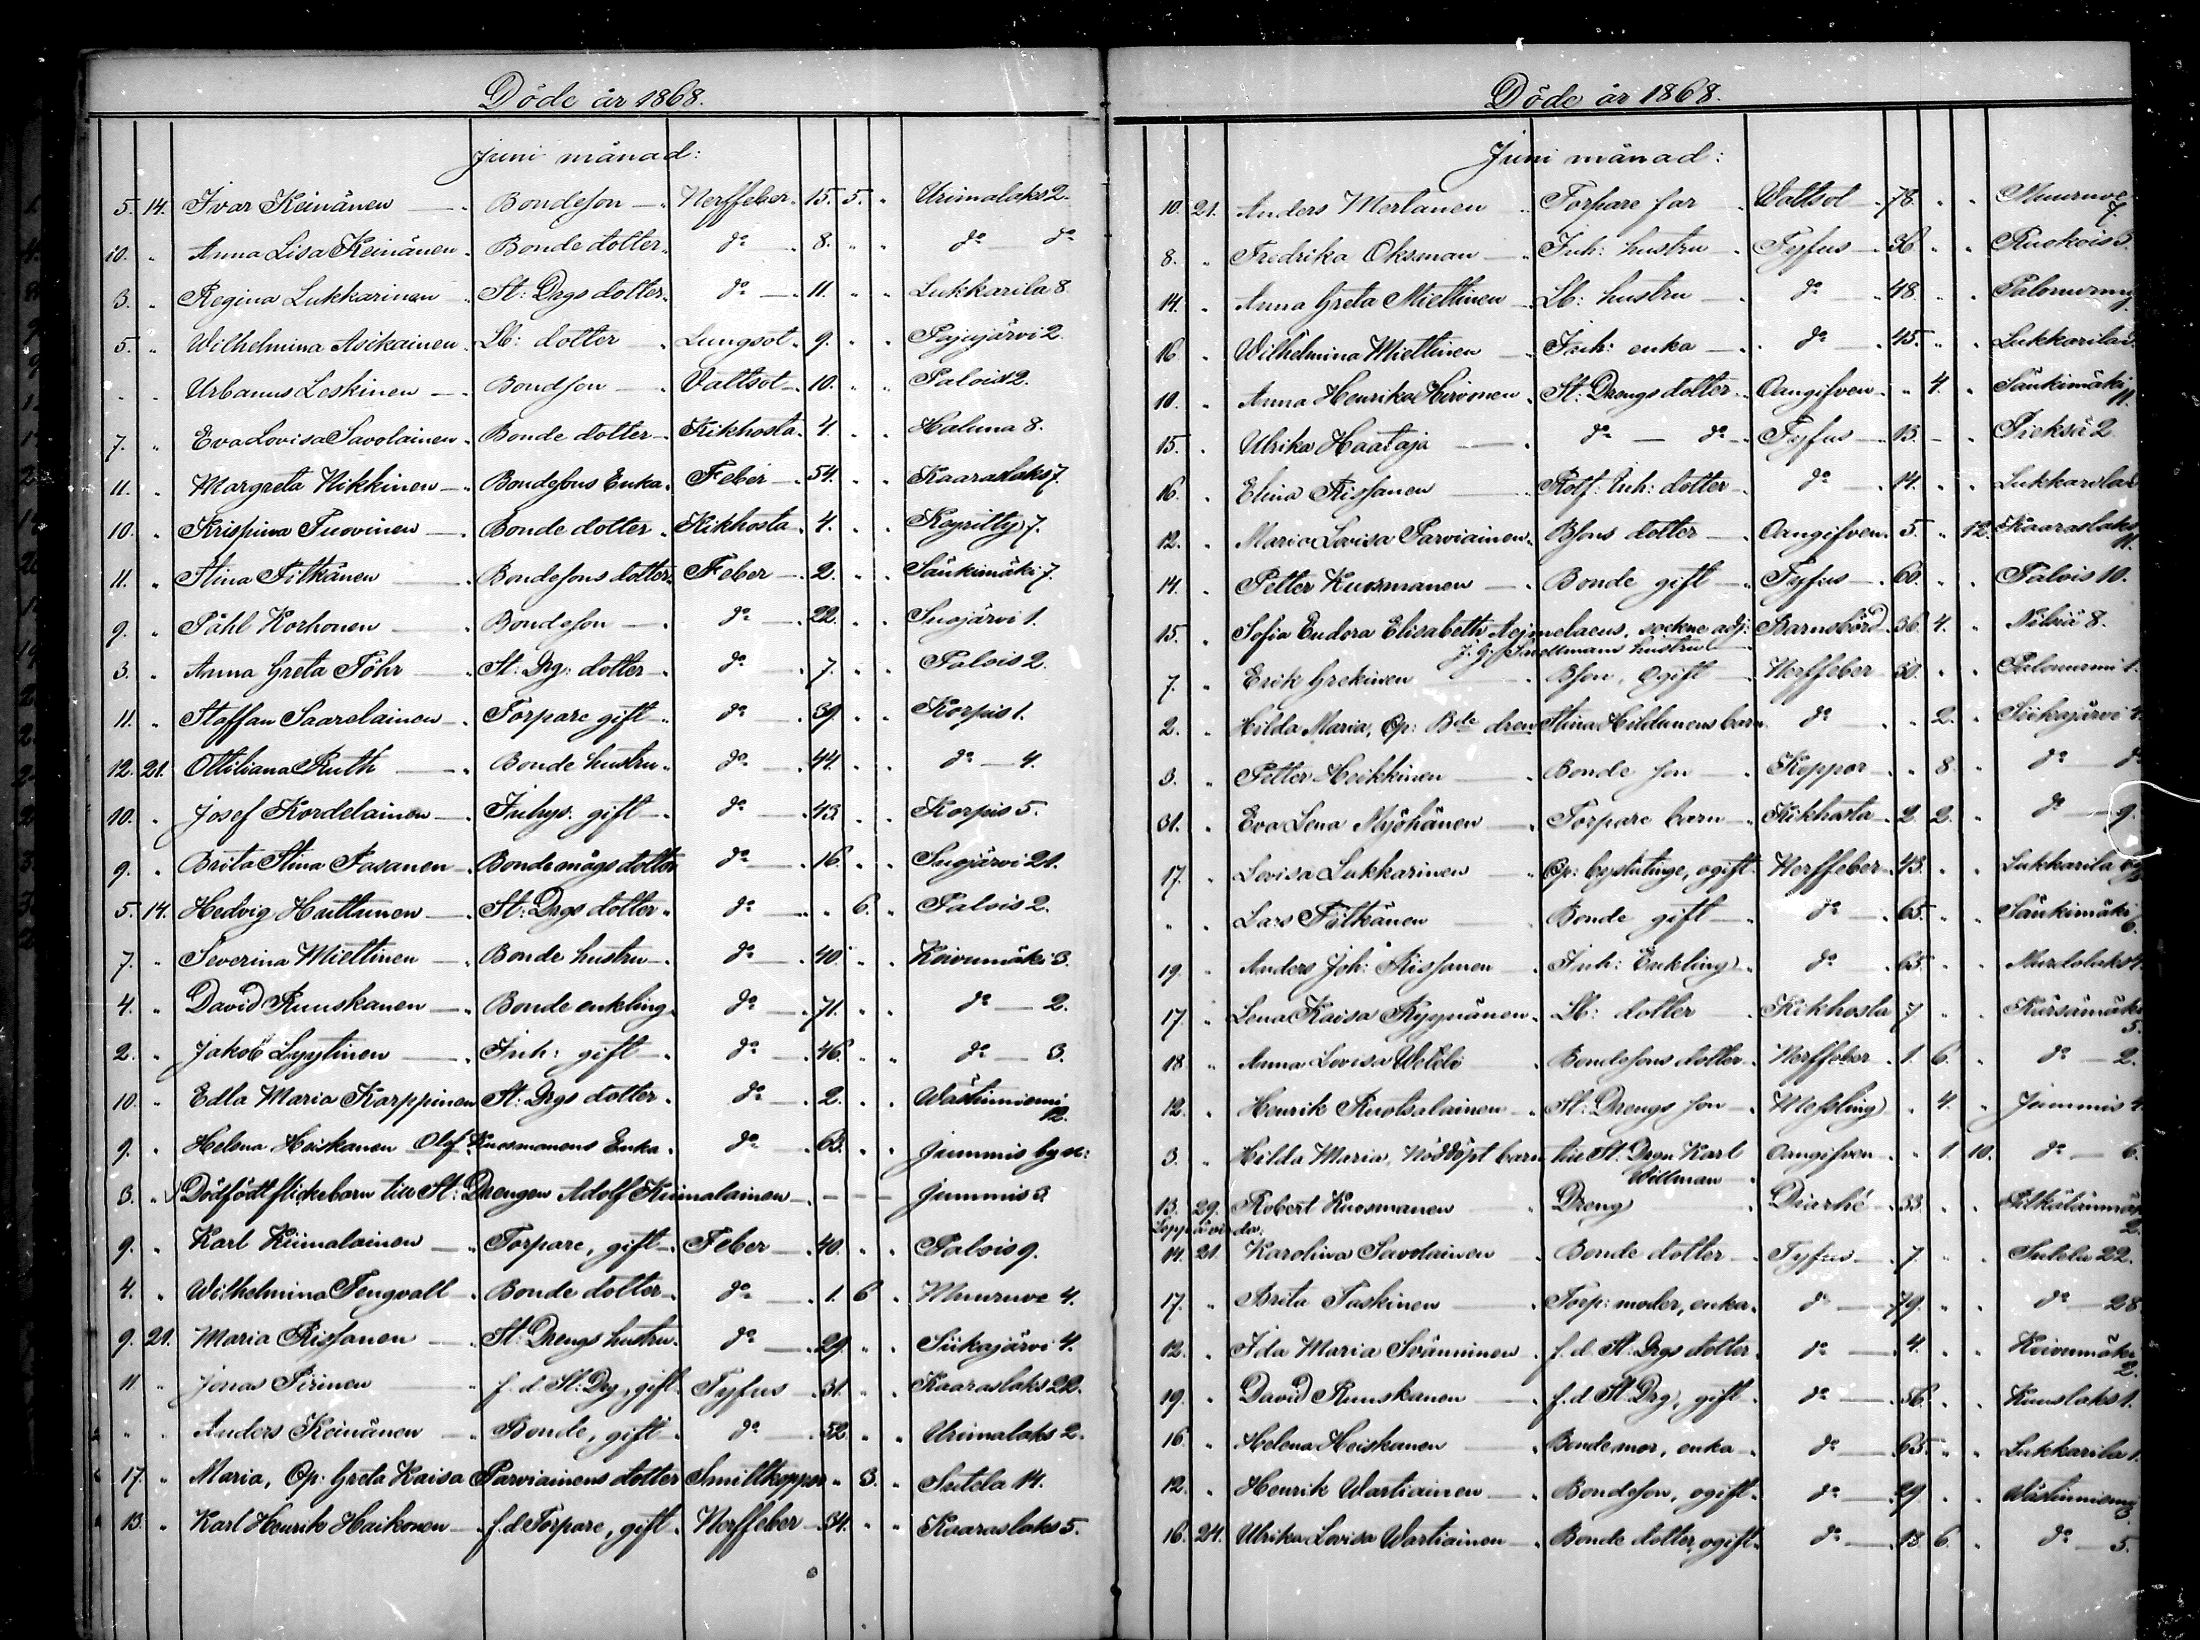 Döde år 1868.
Juni månad:
5. 14. Ivar Keinänen — Bondeson — Nerffeber. 15. 5. " Urimalaks 2.
10. " Anna Lisa Keinänen. Bonde dotter. do 8. " " do do
3. " Regina Lukkarinen St: Drgs dotter. do — 11. " " Lukkarila 8
5. " Wilhelmina Asikainen. Lb: dotter Lungsot. 9. " " Pajujärvi 2.
" " Urbanus Leskinen — Bondson — Valtsot — 10. " " Palois 12.
7. " Eva Lovisa Savolainen. Bonde dotter — Kikhosta. 4. " " Haluna 8.
11. " Margreta Nikkinen — Bondesons Enka. Feber — 54. " " Kaaraslaks 7.
10. " Krispina Tuovinen — Bonde dotter. Kikhosta. 4. " " Keyritty 7.
11. " Stina Pitkänen — Bondesons dotter. Feber — 2. " " Sänkimäki 7.
9. " Påhl Korhonen — Bondeson — do — 22. " " Sugjärvi 1.
3. " Anna Greta Föhr — St: Drg: dotter — do — 7. " " Palois 2.
11. " Staffan Saarelainen — Torpare gift — do — 39. " " Korpis 1.
12. 21. Ottiliana Ruth — Bonde hustru. do — 44. " " do — 4.
10. " Josef Kordelainen — Inhys. gift — do — 43. " " Korpis 5.
9. " Brita Stina Fasanen — Bondemågs dotter do — 16. " " Sugjärvi 21.
5. 14. Hedvig Huttunen — St: Drgs dotter. do — " 6. " Palois 2.
7. " Severina Miettinen — Bonde hustru — do — 40. " " Koivumäki 3.
4. " David Ruuskanen — Bonde enkling. do — 71. " " do — 2.
2. " Jakob Lyytinen — Inh: gift — do — 46. " " do — 3.
10. " Edla Maria Korppinen St: Drgs dotter. do — 2. " " Wästinniemi 12.
9. " Helena Heiskanen Olof Kuosmanens Enka. do — 63. " " Jummis by n:
3. " Dödfödt flickebarn till St: Drengen Adolf Kiimalainen — — — Jummis 3.
9. " Karl Kiimalainen — Torpare, gift — Feber — 40. " " Palois 9.
4. " Wilhelmina Tengvall. Bonde dotter — do — 1. 6 " Muuruve 4.
9. 21. Maria Rissanen — St: Drengs hustru. do — 29. " " Siikajärvi 4.
11 " Jonas Pirinen — f.d St: Drg, gift. Tyfus — 31. " " Kaaraslaks 22.
" " Anders Keinänen — Bonde, gift — do — 52. " " Urimalaks 2.
17. " Maria, Op: Greta Kaisa Parviainens dotter Smittkoppor " 3. " Sutela 14.
13. " Karl Henrik Haikonen — f.d Torpare, gift. Nerffeber — 34. " " Kaaraslaks 5.
Döde år 1868.
Juni månad:
10. 21. Anders Mertanen Torpare far Wattsot — 78. " " Muuruve 7.
8. " Fredrika Oksman — Inh: hustru — Tyfus — 36 " " Ruokois 3.
14. " Anna Greta Miettinen — Lb: hustru — do — 48. " " Palonurmi
16. " Wilhelmina Miettinen — Inh: enka — do — 45. " " Lukkarila
10. " Anna Henrika Hirvonen St: Drengs dotter. Oangifven — " 4. " Sänkimäki 11.
15. " Ulrika Haataja — do — do — Tyfus — 13. — " Pieksä 2
16. " Elina Rissanen — Rotf. Inh: dotter — do — 14. " " Lukkarila
12. " Maria Lovisa Parviainen. Bsons dotter — Oangifven. 5. " 12. Kaaraslaks 11.
14. " Petter Kuosmanen — Bonde gift — Tyfus — 60. " " Palois 10.
15. " Sofia Eudora Elisabeth Aejmelaeus, sockne adj: Barnsbörd. 36. 4. " Nilsiä 8.
J. G. Snellmans hustru —
7. " Erik Grekinen — Bson, Ogift — Nerffeber — 30. " " Palonurmi 1.
2. " Hilda Maria, Op: Stina Hildunens barn do — " 2. " Siikajärvi 4.
3. " Petter Heikkinen — Bonde son — Koppor — " 8. " do
31. " Eva Lena Myöhänen — Torpare barn — Kikhosta — 2. 2. " do — 9.
17. " Lovisa Lukkarinen — Op: ogift. Nerffeber — 43. " " Lukkarila
" " Lars Pitkänen — Bonde gift — do — 65. " " Sänkimäki 6.
19. " Anders Joh: Rissanen — Inh: Enkling. do — 65. " " Murtolaks 4.
17. " Lena Kaisa Ryynänen. Lb: dotter — Kikhosta 7 " " Kärsämäki 5.
18 " Anna Lovisa — Bondesons dotter — Nerffeber — 1. 6. " do — 2.
12. " Henrik Ruotsalainen — St: Drengs son — Messling — " 4. " Jummis 4.
3. " Hilda Maria, Nöddöpt barn till St: Drgn Karl Oangifven — " 1. 10. do — 6.
Willman —
13. 29. Robert Kuosmanen — Dreng — Diarhé — 33. " " Pitkälänmäki 2.
Leppävirda.
14. 21. Karolina Savolainen — Bonde dotter — Tyfus — 7. " " Sutela 22.
17. " Brita Taskinen — Torp: moder, enka. do — 79. " " do — 28.
12. " Ida Maria Svänninen — f.d. St: Drgs dotter — do — 4. " " Koivumäki 2.
19. " David Ruuskanen — f.d St: Drg, gift — do — 56. " " Kuuslaks 1.
16. " Helena Heiskanen — Bonde mor, enka — do — 65. " " Lukkarila 1.
12. " Henrik Wartiainen — Bondeson, ogift. do — 29. " " Wästinniemi
16. 24. Ulrika Lovisa Wartiainen — Bonde dotter, ogift. do — 13. 6. " do — 5.